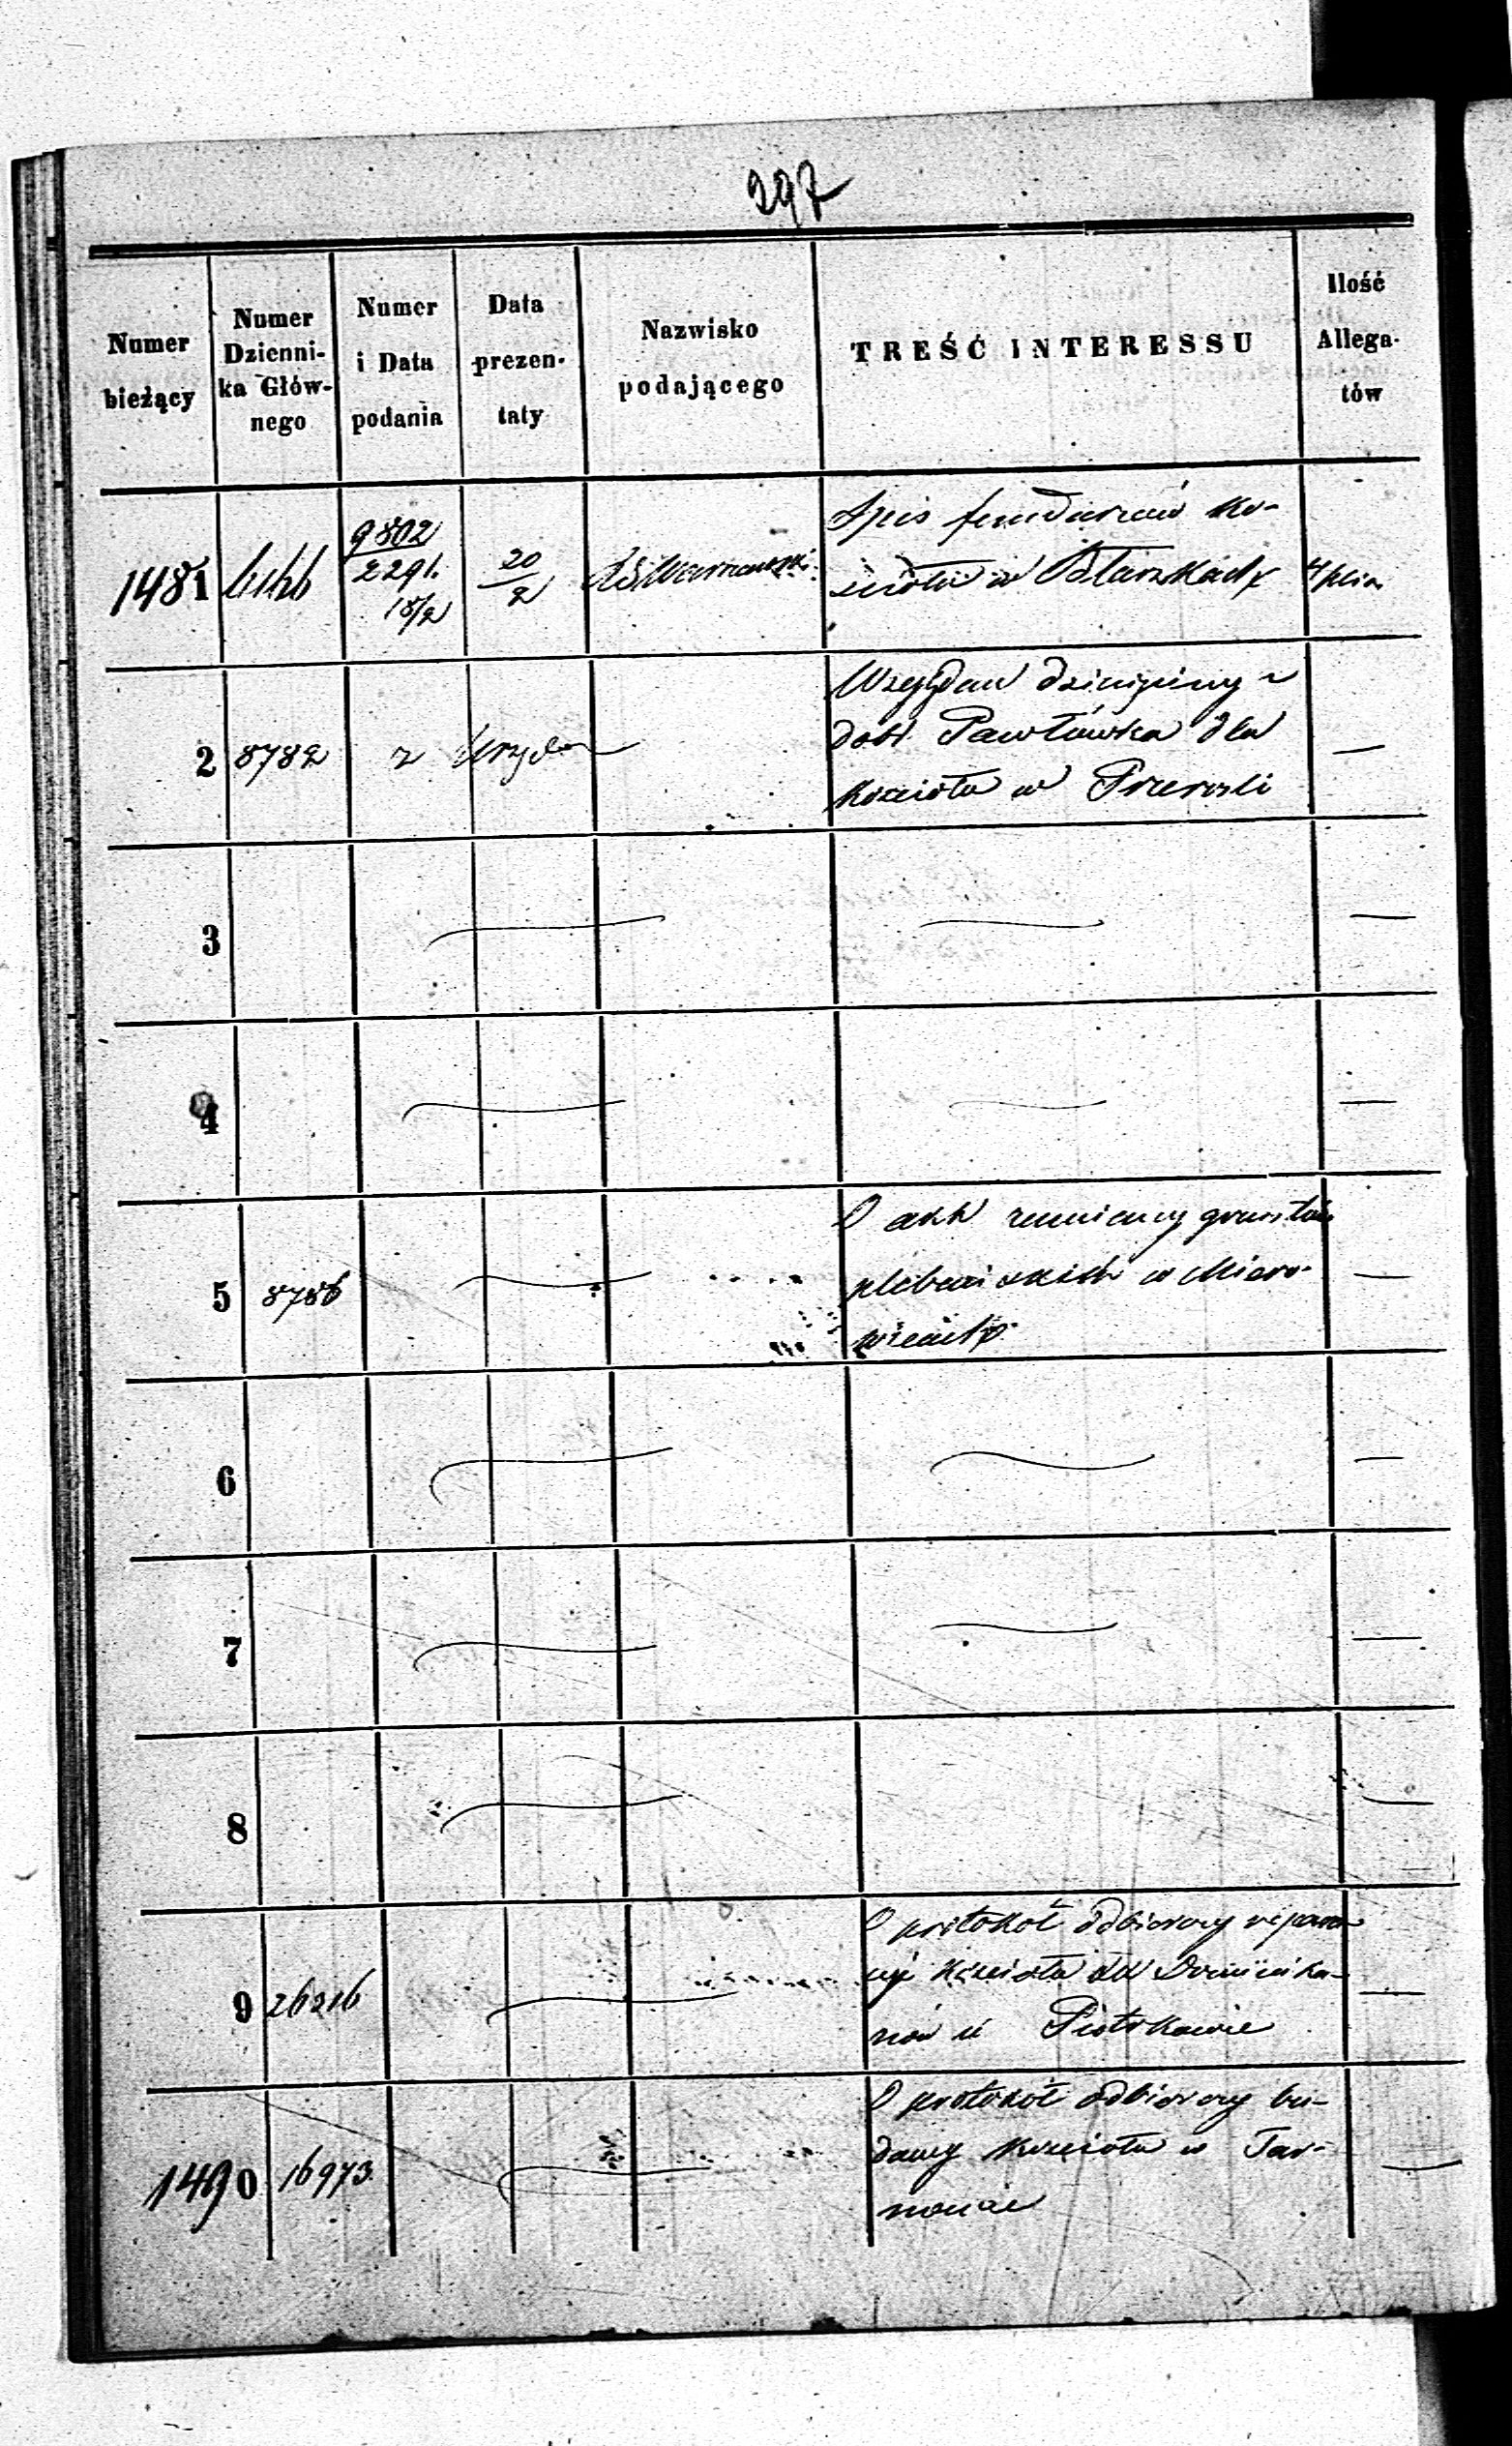 297
Numer bieżący
Numer Dzienni-
ka Głów-
nego
Numer i Data podania
Data prezen-
taty
Nazwisko podającego
TREŚĆ INTERESSU
Ilość Allega-
tów
1481
9802
2291.
18/2
20
2
Spis funduszów ko-
ścioła w
2 8782 z Urzędu
Względem dziesięciny z
dóbr Pawłówka dla
Kościoła w Przerośli
—
3 —
4 —
5 8786
O akk zamiany gruntów
plebańskich w
—
6 —
7 —
8 —
9 26216
O protokół odbiorczy repera-
cyi Kościoła XX Dominika-
nów w Piotrkowie
—
1490 16973
O protokół odbiorczy bu-
dowy Kościoła w Tar-
—